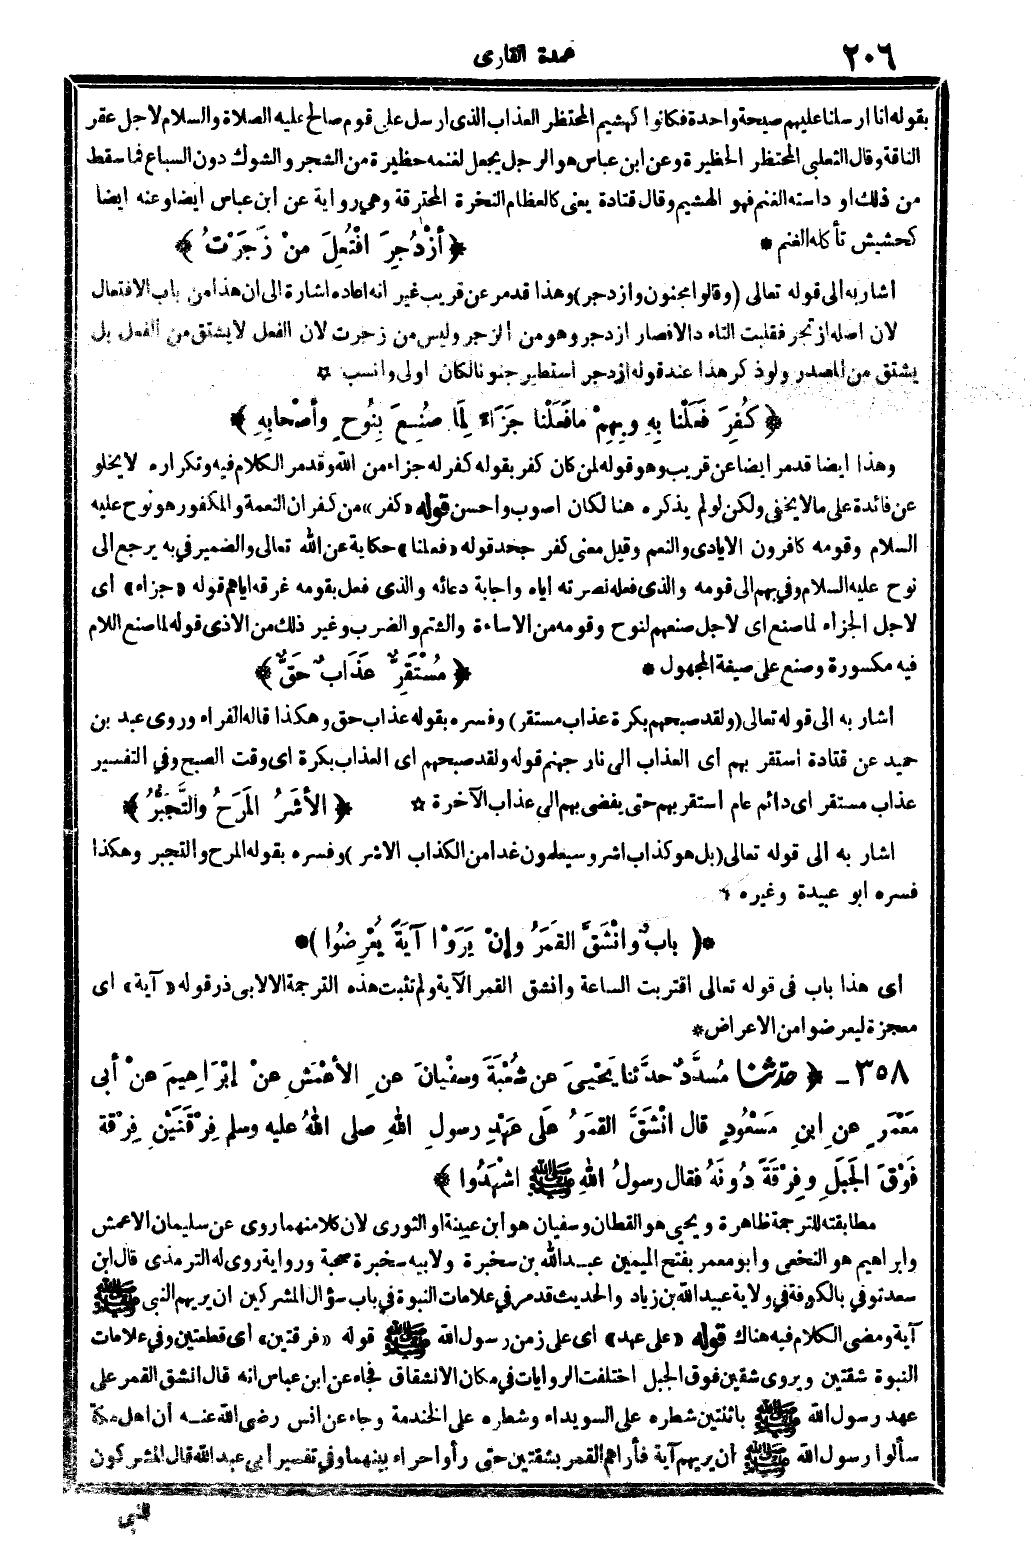 ٢٠٦
عمدة القارى
بقوله انا ارسلنا عليهم صيحة واحدة فكانوا كهشيم المحتظر العذاب الذى ارسل على قوم صالح عليه الصلاة والسلام لاجل عقر
الناقة وقال الثعلبى المحتظر الحظيرة وعن ابن عباس هو الرجل يجعل لغنمه حظيرة من الشجر والشوك دون السباع فما سقط
من ذلك او داسته الغنم فهو الهشيم وقال قتادة يعنى كالعظام النخرة المحترقة وهى رواية عن ابن عباس ايضا وعنه ايضا
كحشيش تأكله الغنم * ﴿ أزْدُجِرَ افْتُعِلَ مِنْ زَجَرْتُ ﴾
اشار به الى قوله تعالى (وقالوا مجنون وازدجر) وهذا قد مر عن قريب غير انه اعاده اشارة الى ان هذا من باب الافتعال
لان اصله ازتجر فقلبت التاء دالا فصار ازدجر وهو من الزجر وليس من زجرت لان الفعل لا يشتق من الفعل بل
يشتق من المصدر ولو ذكر هذا عند قوله ازدجر استطير جنونا لكان اولى وانسب *
﴿ كُفِرَ فَعَلْنا بِهِ وبِهِمْ ما فَعَلْنا جَزَاءً لِمَا صُنِعَ بِنُوحٍ وأصْحابِهِ ﴾
وهذا ايضا قد مر ايضا عن قريب وهو قوله لمن كان كفر بقوله كفر له جزاء من الله وقد مر الكلام فيه وتكراره لا يخلو
عن فائدة على ما لا يخفى ولكن لو لم يذكره هنا لكان اصوب واحسن قوله «كفر» من كفران النعمة والمكفور هو نوح عليه
السلام وقومه كافرون الايادى والنعم وقيل معنى كفر جحد قوله «فعلنا» حكاية عن الله تعالى والضمير فى به يرجع الى
نوح عليه السلام وفى بهم الى قومه والذى فعله نصرته اياه واجابة دعائه والذى فعل بقومه غرقه اياهم قوله «جزاء» اى
لاجل الجزاء لما صنع اى لاجل صنعهم لنوح وقومه من الاساءة والشتم والضرب وغير ذلك من الاذى قوله لما صنع اللام
فيه مكسورة وصنع على صيغة المجهول * ﴿ مُسْتَقِرٌّ عَذَابٌ حَقٌّ ﴾
اشار به الى قوله تعالى (ولقد صبحهم بكرة عذاب مستقر) وفسره بقوله عذاب حق وهكذا قاله الفراء وروى عبد بن
حميد عن قتادة استقر بهم اى العذاب الى نار جهنم قوله ولقد صبحهم اى العذاب بكرة اى وقت الصبح وفى التفسير
عذاب مستقر اى دائم عام استقر بهم حتى يفضى بهم الى عذاب الآخرة * ﴿ الأشَرُ المَرَحُ والتَّجَبُّرُ ﴾
اشار به الى قوله تعالى (بل هو كذاب اشر وسيعلمون غدا من الكذاب الاشر) وفسره بقوله المرح والتجبر وهكذا
فسره ابو عبيدة وغيره *
*( بابٌ وانْشَقَّ القَمَرُ وإنْ يَرَوْا آيَةً يُعْرِضُوا )*
اى هذا باب فى قوله تعالى اقتربت الساعة وانشق القمر الآية ولم تثبت هذه الترجمة الا لابى ذر قوله «آية» اى
معجزة ليعرضوا من الاعراض *
٣٥٨ـ ﴿ حدثنا مُسدَّدٌ حدَّثنا يَحْيىَ عنْ شُعْبَةَ وسفْيانَ عنِ الأعْمَشِ عنْ إبْرَاهِيمَ عنْ أبى
مَعْمَرٍ عنِ ابنِ مَسْعُودٍ قال انْشَقَّ القمَرُ علَى عَهْدِ رسولِ اللهِ صلى اللهُ عليه وسلم فِرْقَتَيْنِ فِرْقَةً
فَوْقَ الجَبَلِ وفِرْقَةً دُونَهُ فقال رسولُ اللهِ ﷺ اشْهَدُوا ﴾
مطابقته للترجمة ظاهرة ويحيى هو القطان وسفيان هو ابن عيينة او الثورى لان كلا منهما روى عن سليمان الاعمش
وابراهيم هو النخعى وابو معمر بفتح الميمين عبد الله بن سخبرة ولابيه سخبرة صحبة ورواية روى له الترمذى قال ابن
سعد توفى بالكوفة فى ولاية عبيد الله بن زياد والحديث قد مر فى علامات النبوة فى باب سؤال المشركين ان يريهم النبى ﷺ
آية ومضى الكلام فيه هناك قوله «على عهد» اى على زمن رسول الله ﷺ قوله «فرقتين» اى قطعتين وفى علامات
النبوة شقتين ويروى شقين فوق الجبل اختلفت الروايات فى مكان الانشقاق فجاء عن ابن عباس انه قال انشق القمر على
عهد رسول الله ﷺ باثنتين شطره على السويداء وشطره على الخندمة وجاء عن انس رضى الله عنه أن اهل مكة
سألوا رسول الله ﷺ أن يريهم آية فأراهم القمر بشقتين حتى رأوا حراء بينهما وفى تفسير ابى عبد الله قال المشركون
للنبى